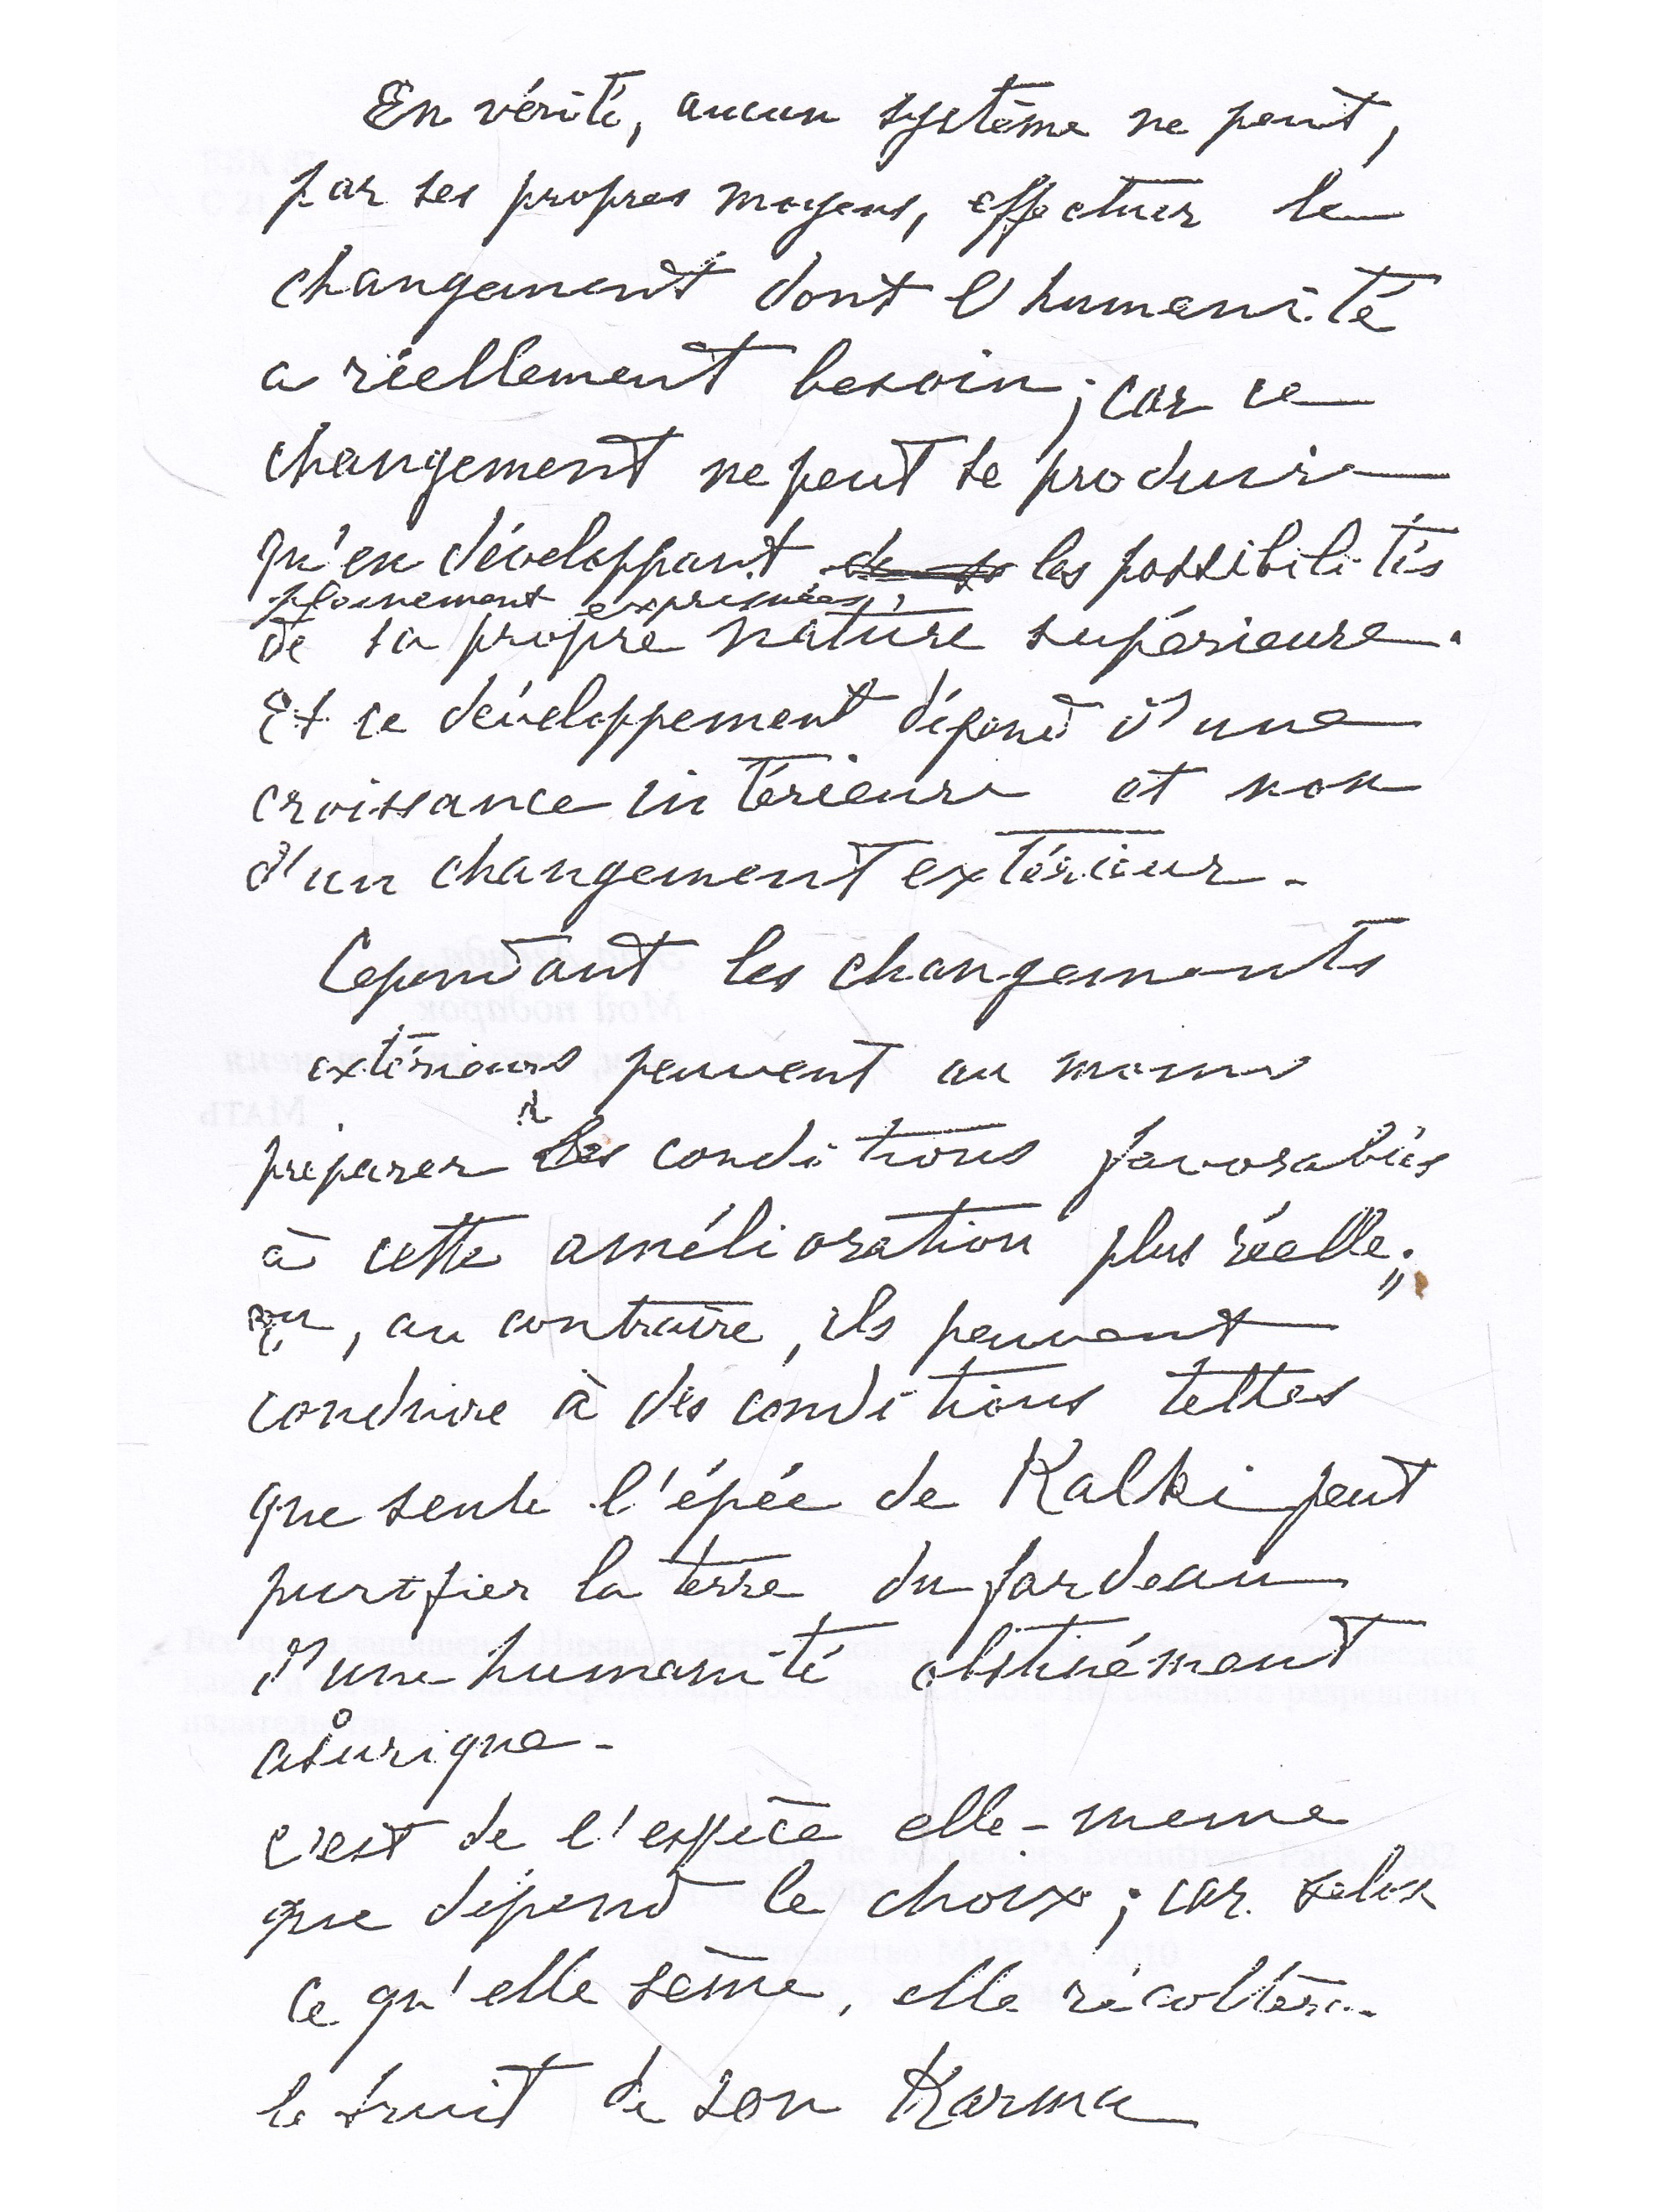 En vérité, aucun système ne peut,
par ses propres moyens, effectuer le
changement dont l'humanité
a réellement besoin ; car ce
changement ne peut se produire
qu'en développant les possibilités
pleinement exprimées,
de sa propre nature supérieure.
Et ce développement dépend d'une
croissance intérieure et non
d'un changement extérieur.
Cependant les changements
extérieurs peuvent au moins
préparer des conditions favorables
à cette amélioration plus réelle ;
ou, au contraire, ils peuvent
conduire à des conditions telles
que seule l'épée de Kalki peut
purifier la terre du fardeau
d'une humanité obstinément
asurique.
C'est de l'espèce elle-meme
que dépend le choix ; car selon
ce qu'elle sème, elle récoltera
le fruit de son Karma